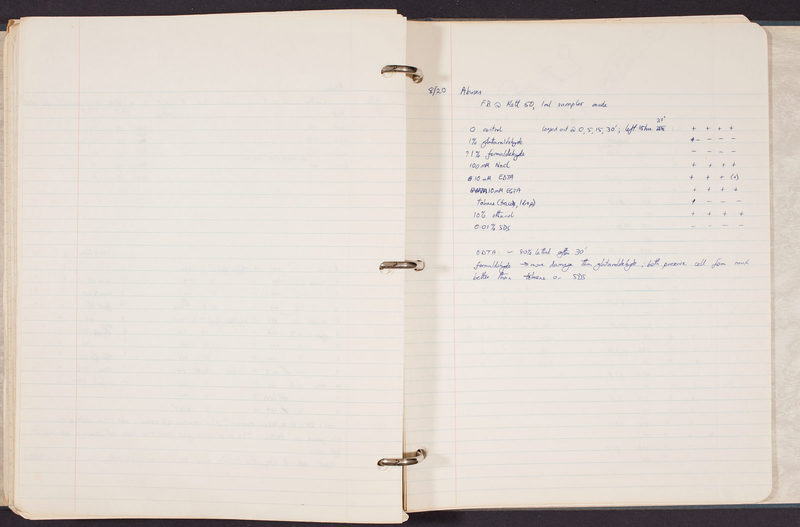 8/20 Abuses
FB @ Klett 50, 1ml samples made
30'
0 control looped out @ 0, 5, 15, 30'; left : + + + +
1% glutaraldehyde + - - -
?1% formaldehyde - - - -
100 mM NaCl + + + +
10 mM EDTA + + + (+)
10 mM EGTA + + + +
Toluene ( 1 drop) + - - -
10% ethanol + + + +
0.01% SDS - - - -
EDTA: ~ 90% lethal after 30'
formaldehyde → more damage than glutaraldehyde, both preserve cell form much
better than toluene or SDS